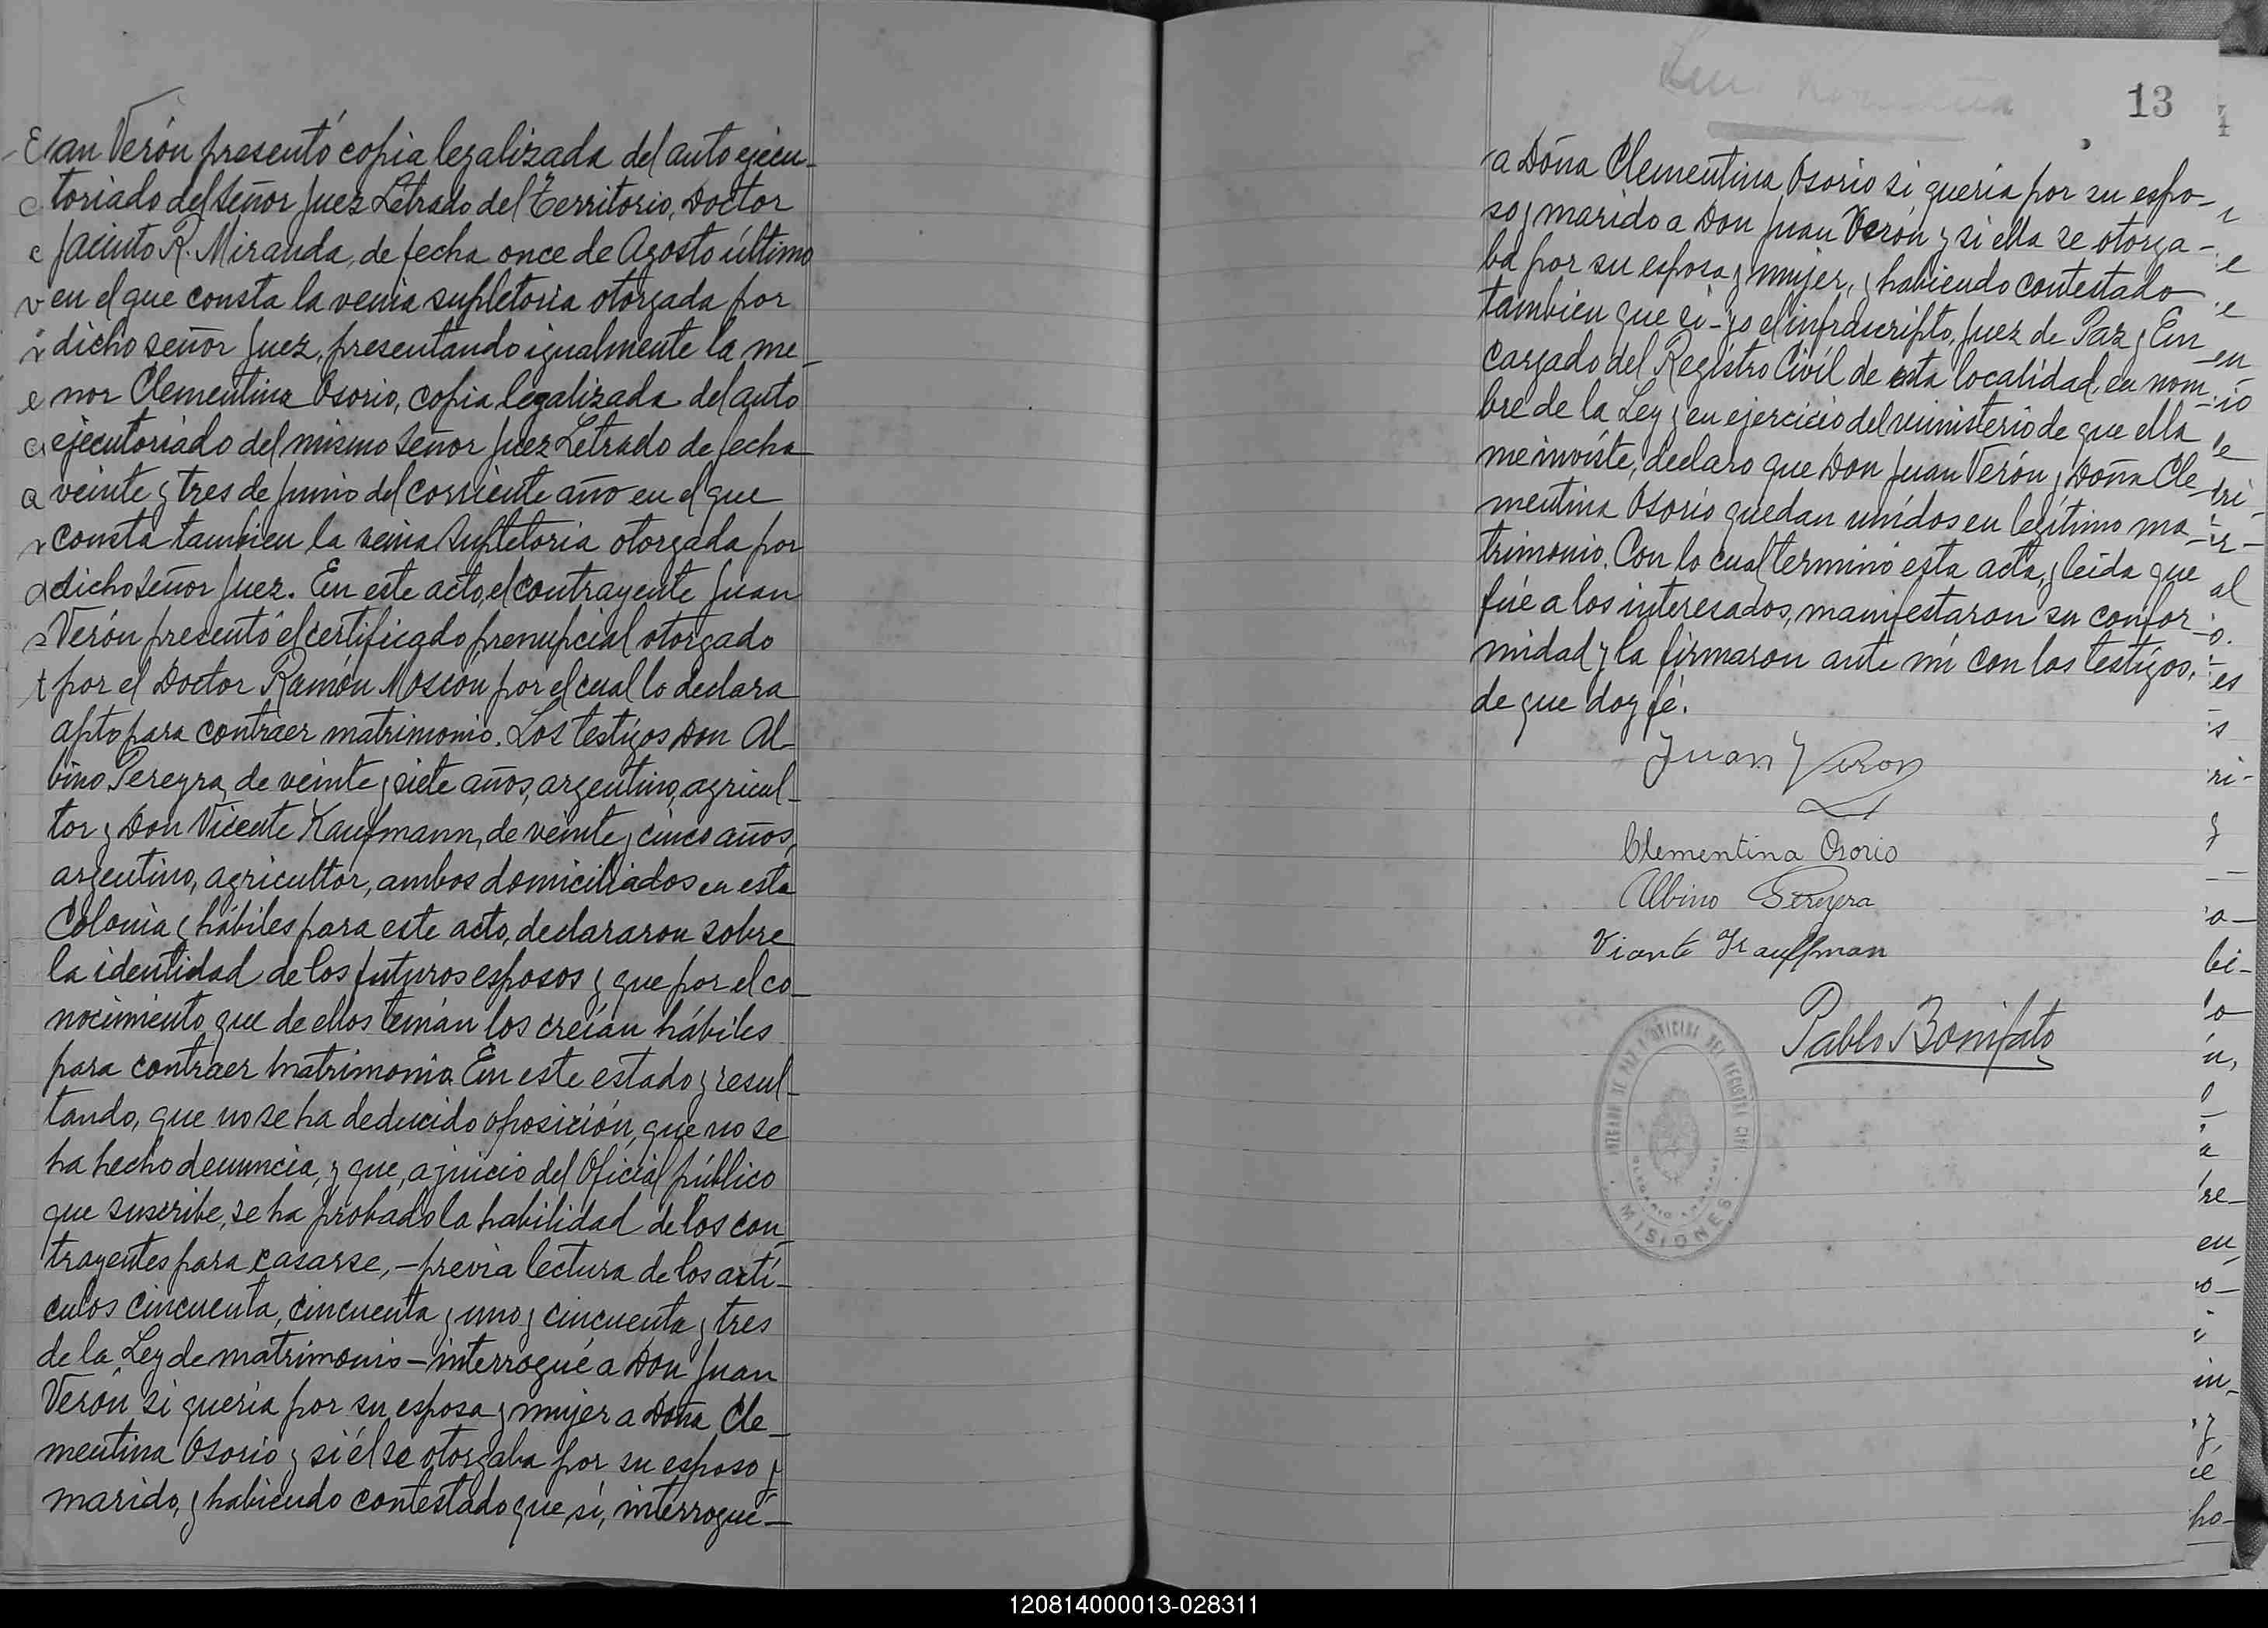 Juan Verón presentó copia legalizada del auto ejecu-
toriado del Señor Juez Letrado del Territorio, Doctor
Jacinto R. Miranda, de fecha once de Agosto último
en el que consta la venia supletoria otorgada por
dicho señor Juez, presentando igualmente la me-
nor Clementina Osorio, copia legalizada del auto
ejecutoriado del mismo Señor Juez Letrado de fecha
veinte y tres de Junio del corriente año en el que
consta tambien la venia supletoria otorgada por
dicho Señor Juez. En este acto, el contrayente Juan
Verón presentó el certificado prenupcial otorgado
por el Doctor Ramón Moscou por el cual lo declara
apto para contraer matrimonio. Los testigos Don Al-
bino Pereyra, de veinte y siete años, argentino, agricul-
tor y Don Vicente Kaufmann, de veinte y cinco años,
argentino, agricultor, ambos domiciliados en esta
Colonia y hábiles para este acto, declararon sobre
la identidad de los futuros esposos y que por el co-
nocimiento que de ellos tenían los creían hábiles
para contraer matrimonio. En este estado y resul-
tando, que no se ha deducido oposición, que no se
ha hecho denuncia, y que, a juicio del Oficial público
que suscribe, se ha probado la habilidad de los con-
trayentes para casarse, - previa lectura de los artí-
culos cincuenta, cincuenta y uno y cincuenta y tres
de la Ley de matrimonio - interrogué a Don Juan
Verón si quería por su esposa y mujer a Doña Cle-
mentina Osorio y si él se otorgaba por su esposo y
marido, y habiendo contestado que sí, interrogué-
13
a Doña Clementina Osorio si quería por su espo-
so y marido a Don Juan Verón y si ella se otorga-
ba por su esposa y mujer, y habiendo contestado
tambien que si - yo el infrascripto, Juez de Paz y En
cargado del Registro Civíl de esta localidad, en nom-
bre de la Ley y en ejercicio del ministerio de que ella
me inviste, declaro que Don Juan Verón y Doña Cle-
mentina Osorio quedan unídos en legítimo ma-
trimonio. Con lo cual terminó esta acta, y leída que
fué a los interesados, manifestaron su confor-
midad y la firmaron ante mí con los testigos,
de que doy fé.
Juan Veron
Clementina Osorio
Albino Pereyra
Vicente Kauffman
Pablo Bonifato
JUZGADO DE PAZ Y OFICINA DEL REGISTRO CIVIL
MISIONES
120814000013-028311